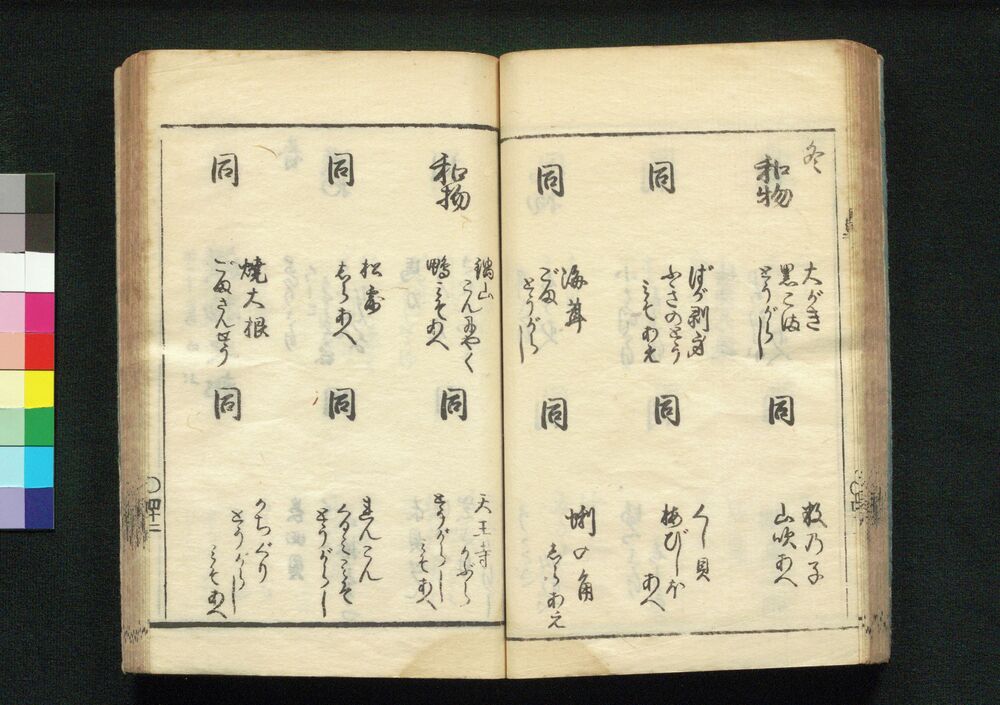 冬
和物
大がき
黒ごま
とうがらし
同
数乃子
山吹あへ
同
ばか剥身
ふきのとう
みそあえ
同
くし貝
梅びしほ
あへ
同
海茸
ごま
とうがらし
同
蜊の角
しらあえ
和物
鍋山
こんにやく
鴨みそあへ
同
天王寺
かぶら
とうがらし
みそあへ
同
松露
しらあへ
同
れんこん
くるみみそ
とうがらし
同
焼大根
ごまさんせう
同
かちぐり
とうがらし
みそあへ
〇四十二